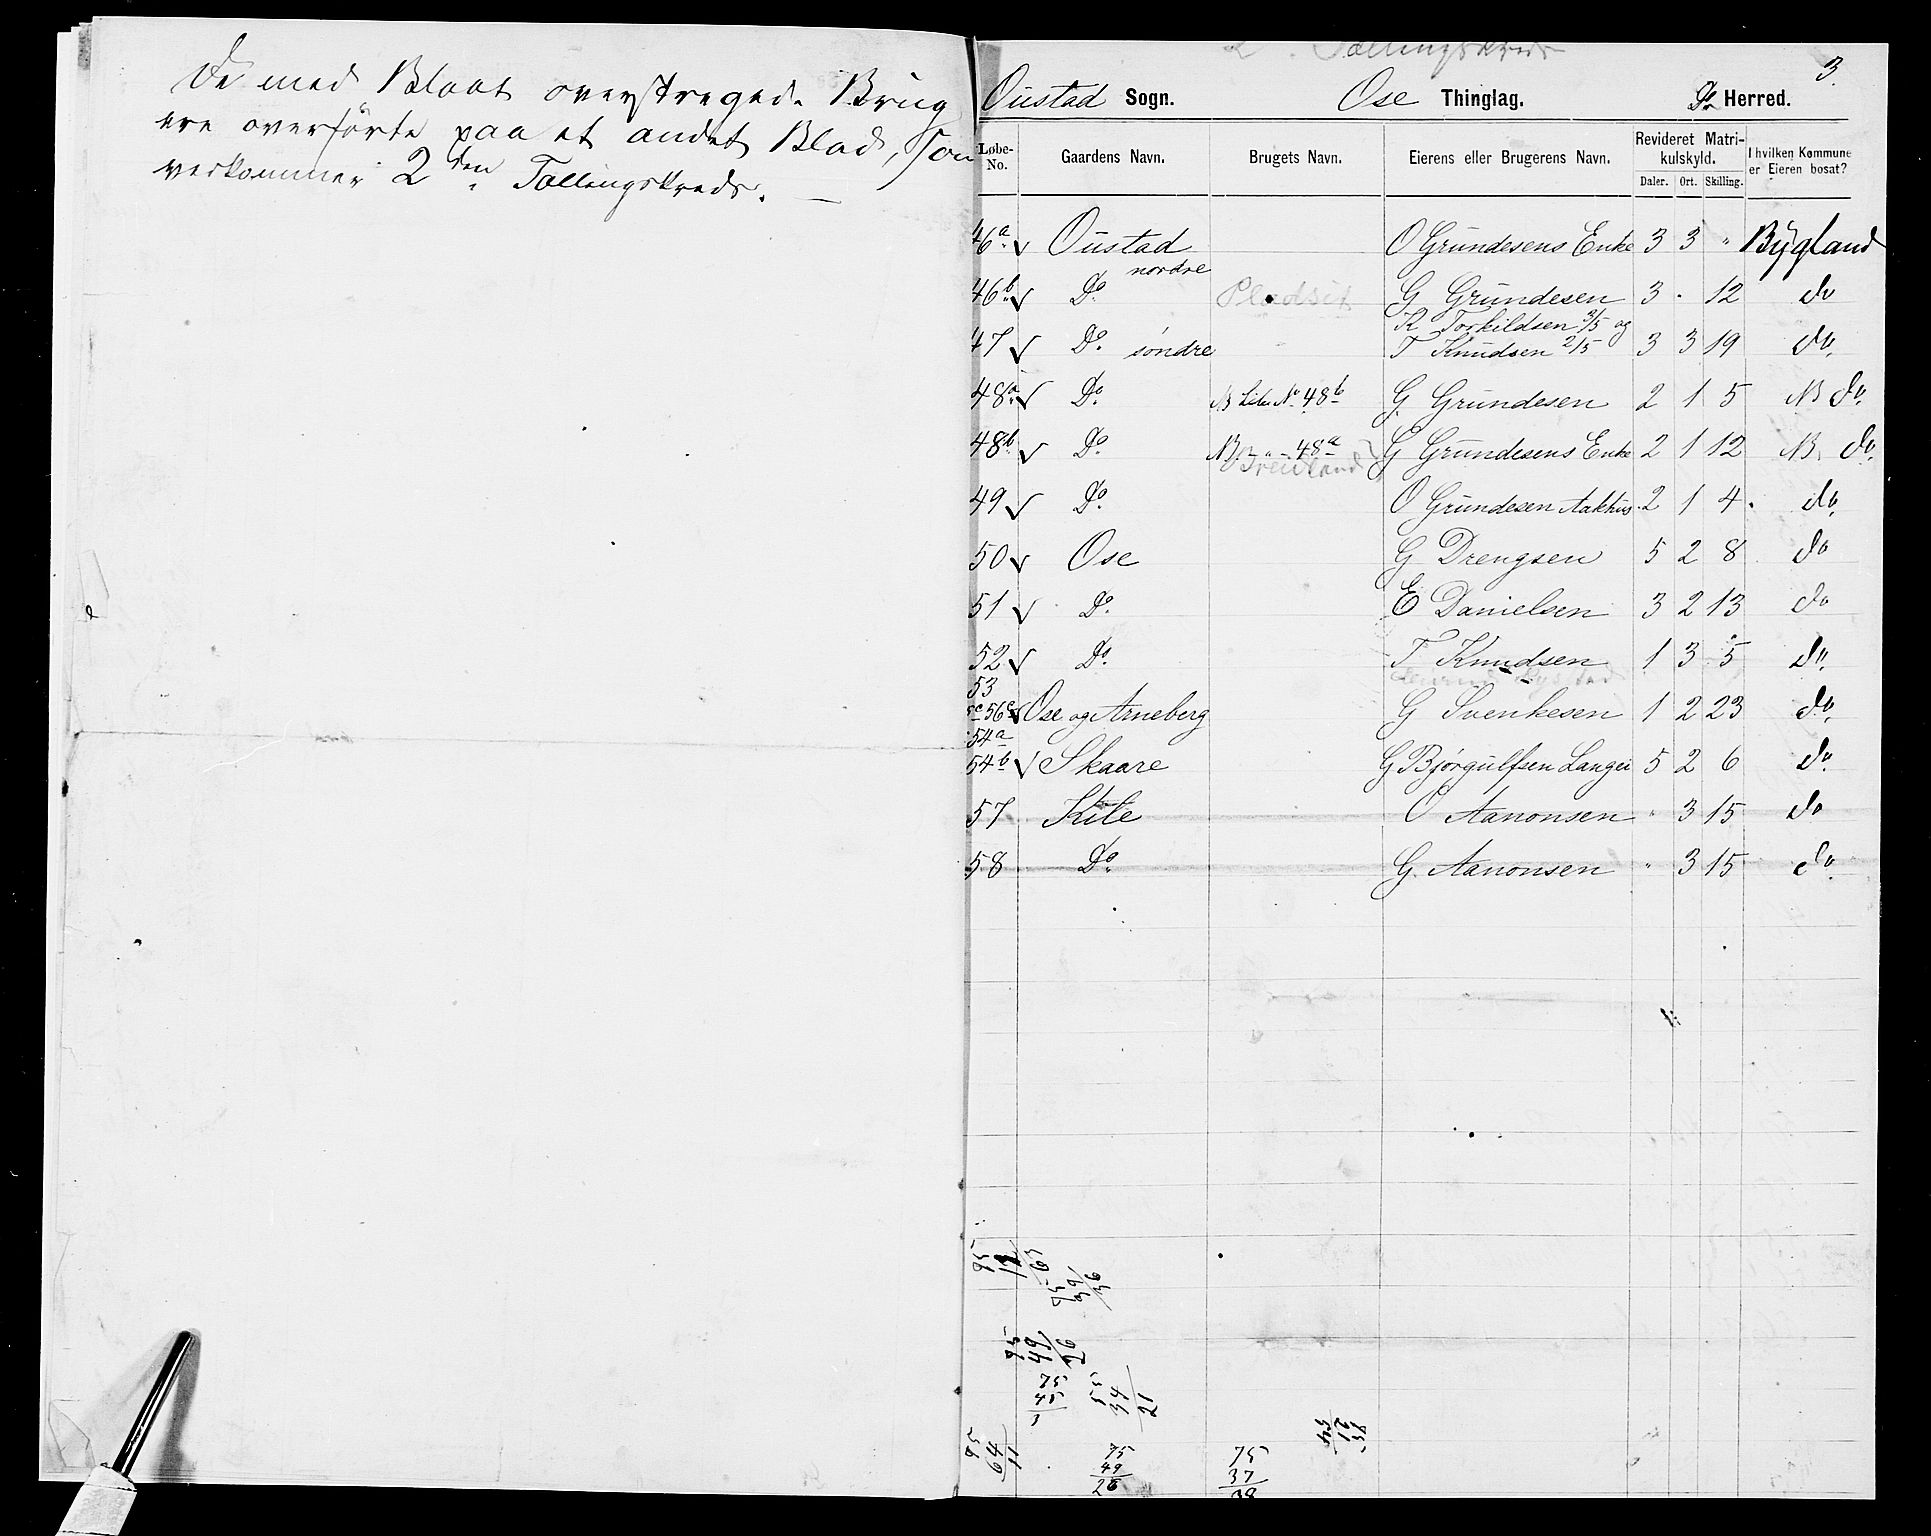 De med Blaat overstregede Brug
ere overførte paa et andet Blad, som
verkommer 2den Tællingskreds. —
2 Tællingskreds
3.
Oustad Sogn. Ose Thinglag. Do Herred.
Løbe-No. Gaardens Navn. Brugets Navn. Eierens eller Brugerens Navn. Revideret Matrikulskyld. Daler. Ort. Skilling. I hvilken Kommune er Eieren bosat?
46a Oustad nordre O Grundesens Enke 3 3 " Bygland
46b Do Pladsit G Grundesen 3 . 12 do
47 Do søndre K Torkildsen 3/5 og T Knudsen 2/5 3 3 19 do
48a Do NB No 48b G. Grundesen 2 1 5 NB do
48b Do NB " 48a G Grundesens Enke 2 1 12 NB do
49 Do O Grundesen Aakhus 2 1 4 do
50 Ose G Drengsen 5 2 8 do
51 Do E Danielsen 3 2 13 do
52 Do T Knudsen 1 3 5 do
53 56c Ose og Arneberg G Svenkesen 1 2 23 do
54a
54b Skaare G Bjørgulfsen Langei 5 2 6 do
57 Kile O Aanonsen " 3 15 do
58 Do G. Aanonsen " 3 15 do
75
49
26
75
37
38